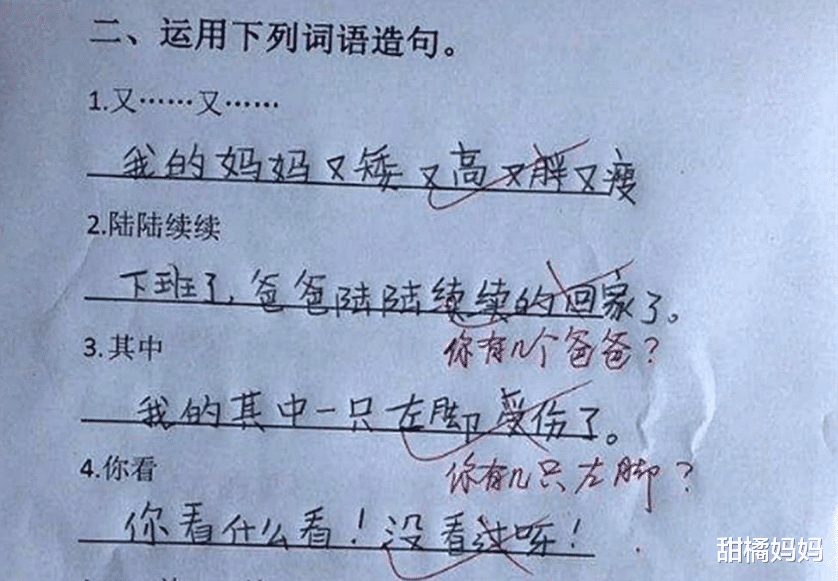 二、运用下列词语造句。
1.又……又……
我的妈妈又矮又高又胖又瘦
2.陆陆续续
下班了,爸爸陆陆续续的回家了。
3.其中
你有几个爸爸?
我的其中一只左脚受伤了。
4.你看
你有几只左脚?
你看什么看!没看过呀!
甜橘妈妈